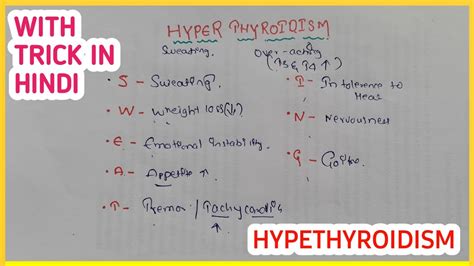 WITH
TRICK IN
HINDI
HYPER THYROIDISM
Sweating. Over-aching
(T3 & T4 ↑)
• S – Sweating.
• W – Weight loss(↓)
• E – Emotional instability.
• A – Appetite ↑
• T – Tremor / Tachycardia
↑
• I – Intolerence to
Heat
• N – Nervousness
• G – Goitre.
HYPETHYROIDISM